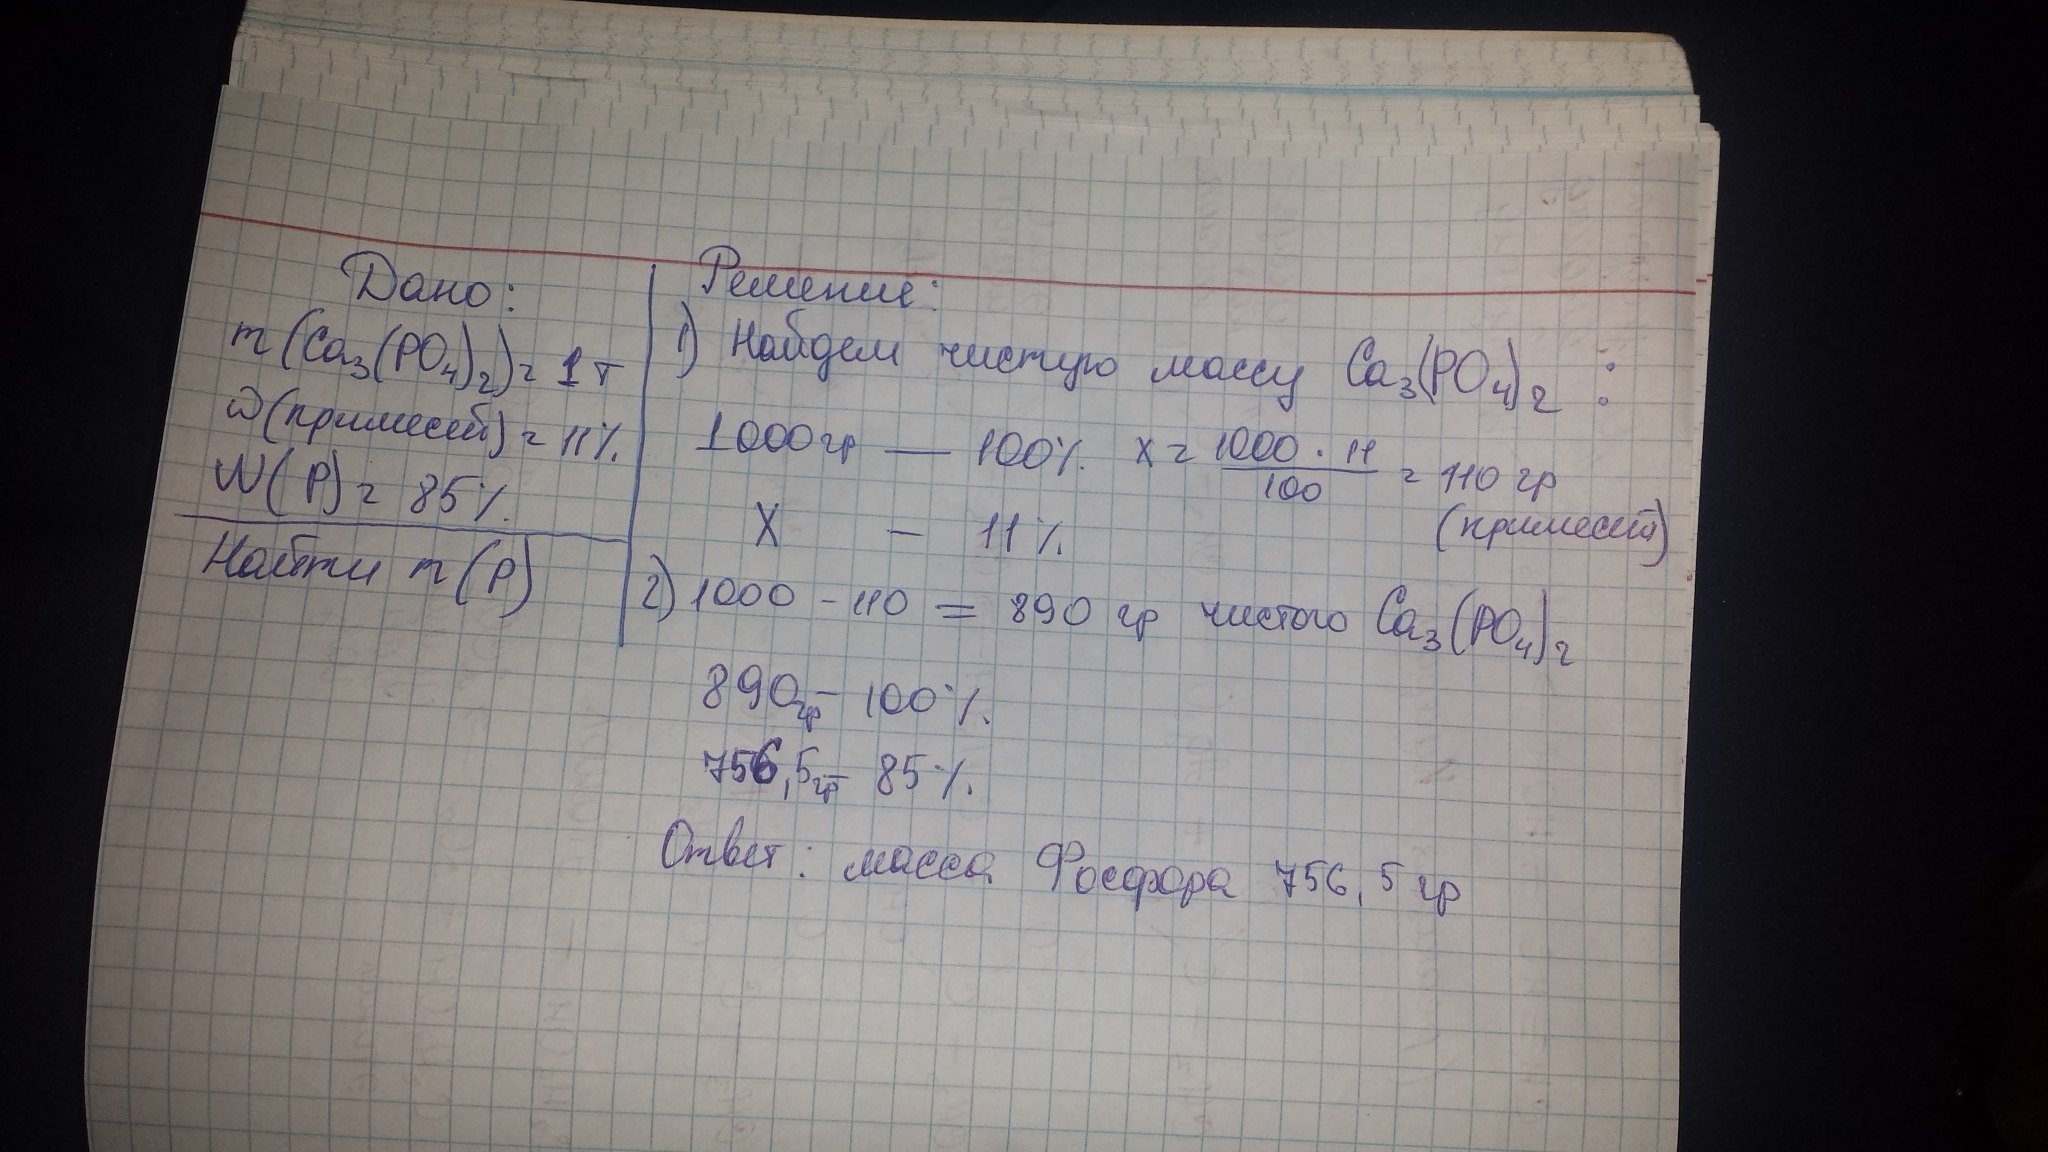 Дано:
m(Ca₃(PO₄)₂) = 1т
ω(примесей) = 11%
W(P) = 85%
Найти m(P)
Решение:
1) Найдем чистую массу Ca₃(PO₄)₂ :
1000гр — 100% x = 1000 · 11 / 100 = 110 гр
X – 11% (примесей)
2) 1000 – 110 = 890 гр чистого Ca₃(PO₄)₂
890гр – 100%
756,5гр – 85%
Ответ: масса Фосфора 756,5 гр